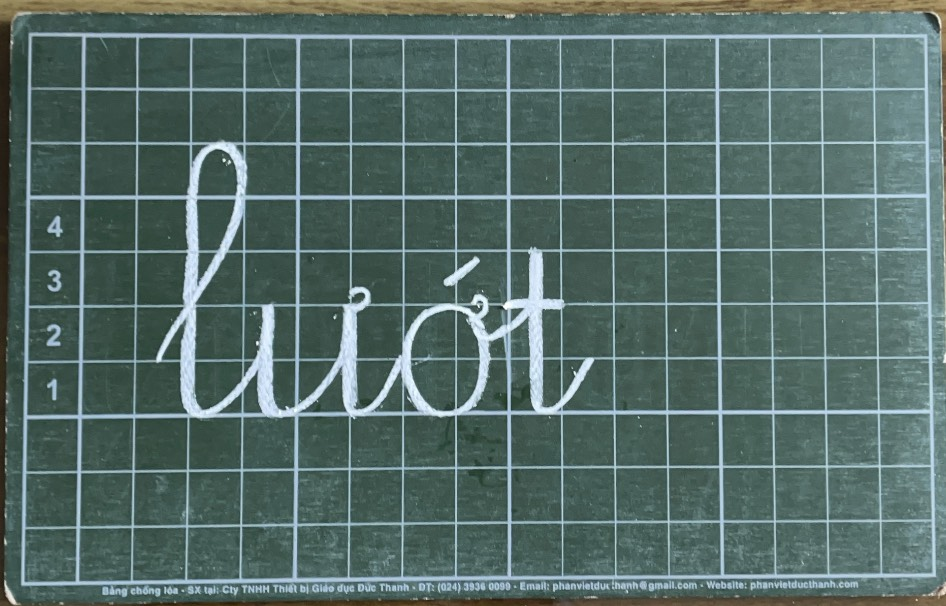 4
3
2
1
lướt
Bảng chống lóa - SX tại: Cty TNHH Thiết bị Giáo dục Đức Thanh - ĐT: (024) 3936 0090 - Email: phanvietducthanh@gmail.com - Website: phanvietducthanh.com